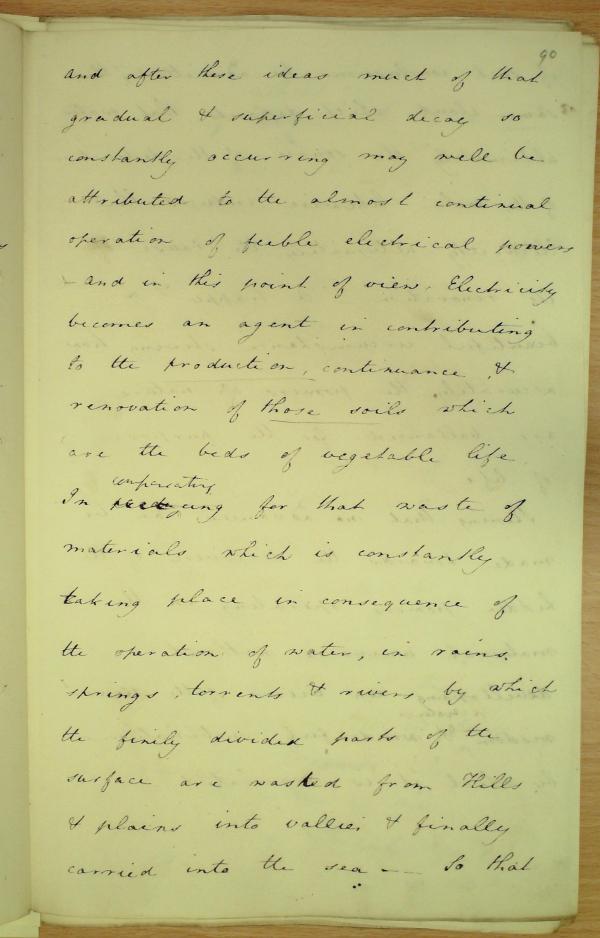 90
and after these ideas much of that
gradual & superficial decay so
constantly occurring may well be
attributed to the almost continual
operation of feeble electrical powers
- and in this point of view. Electricity
becomes an agent in contributing
to the production, continuance, &
renovation of those soils which
are the beds of vegetable life
compensating
In for that waste of
materials which is constantly
taking place in consequence of
the operation of water, in rains.
springs, torrents & rivers by which
the finely divided parts of the
surface are washed from Hills
& plains into vallies & finally
carried into the sea — So that